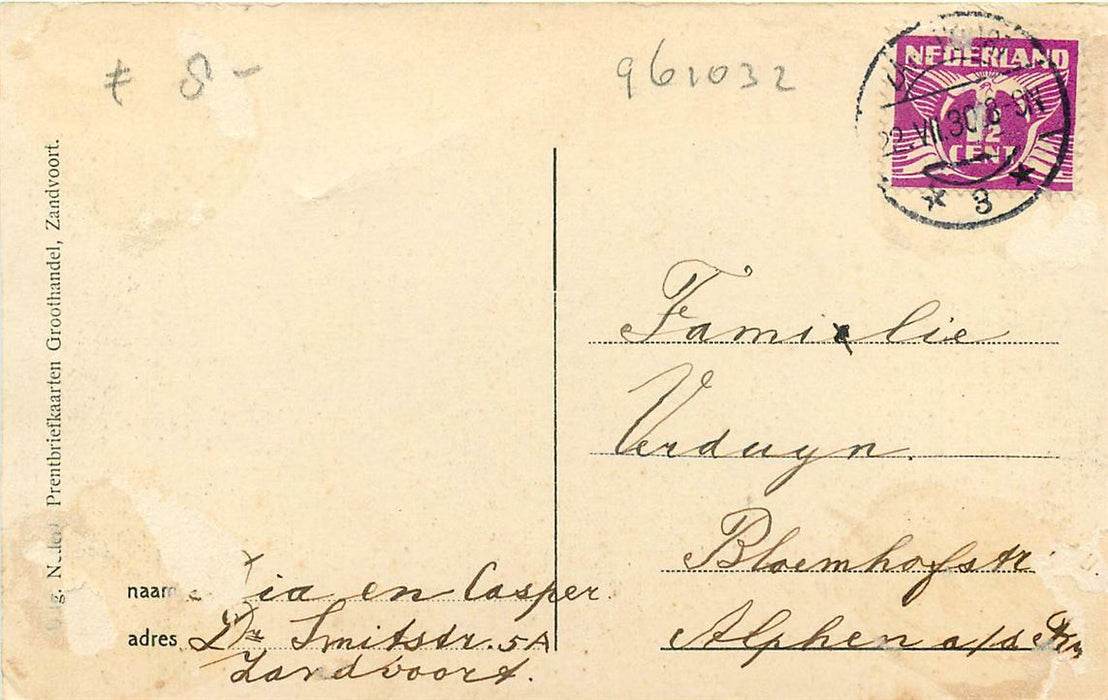 ƒ 8 -
961032
NEDERLAND
22.VII.30.8-9N
CENT
3
Uitg. Nederl. Prentbriefkaarten Groothandel, Zandvoort.
Familie
Verduyn.
Bloemhofstr
Alphen a/d Rn
naam ia en Casper.
adres Dr Smitstr. 5A
Zandvoort.